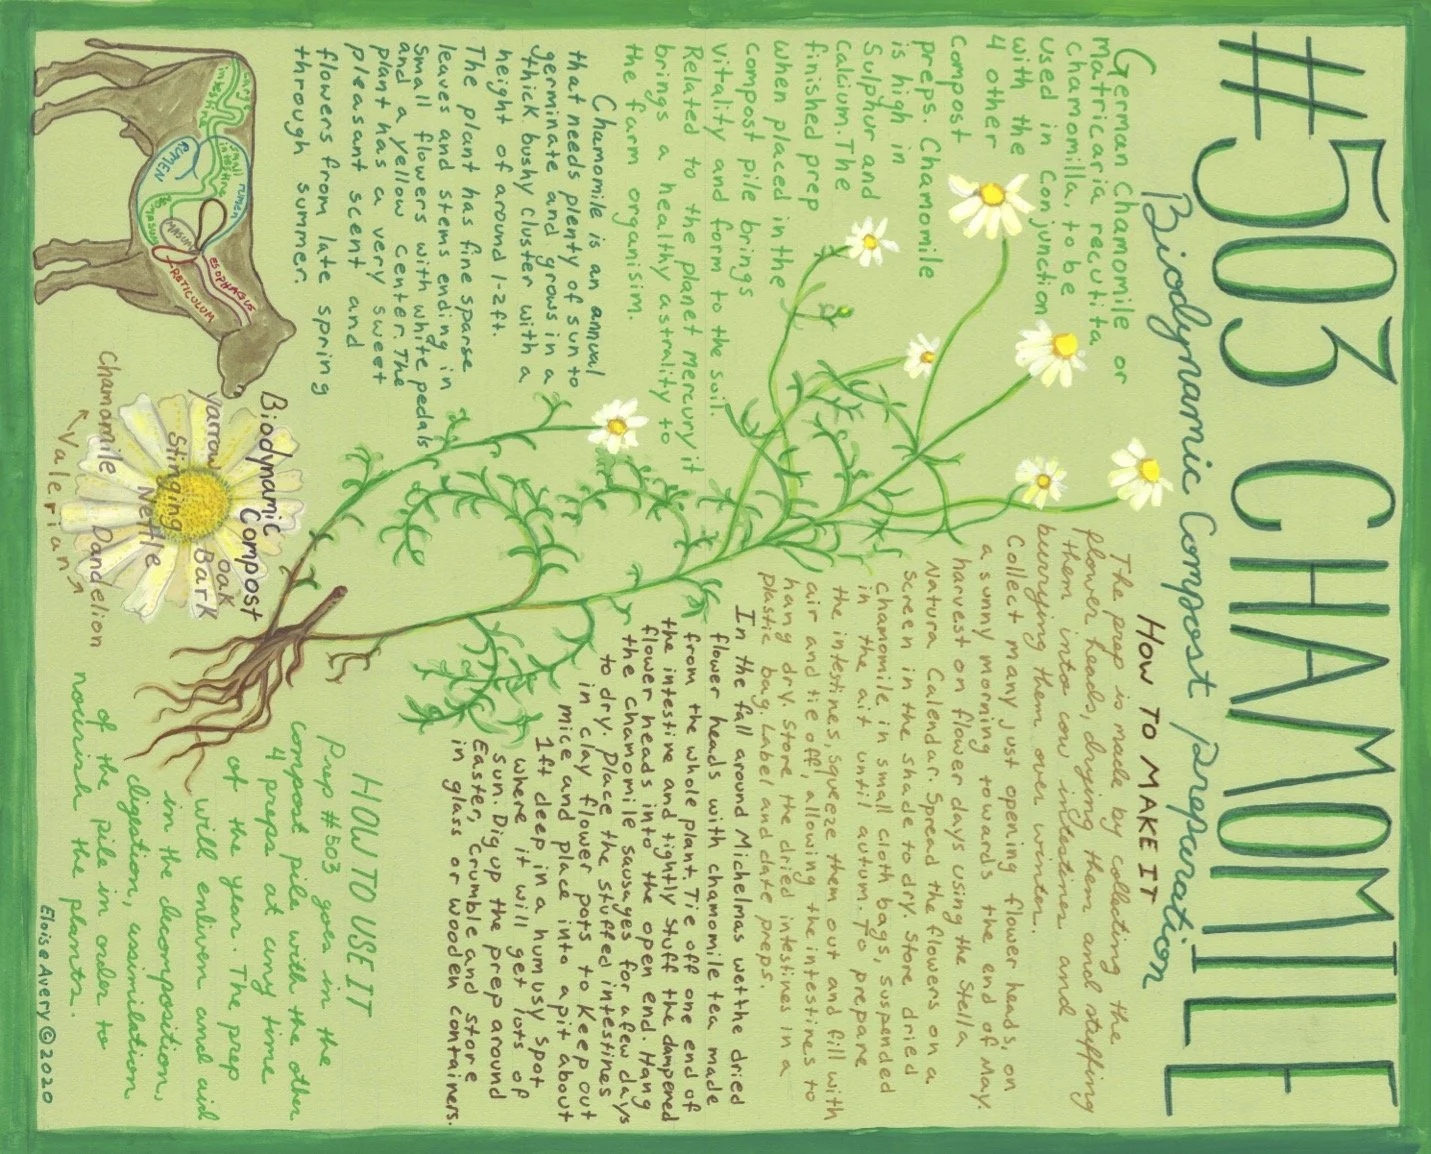 #503 CHAMOMILE
Biodynamic Compost preparation
German Chamomile or
matricaria recutita
chamomilla, to be
used in conjunction
with the
4 other
compost
preps. Chamomile
is high in
Sulphur and
Calcium. The
finished prep
when placed in the
compost pile brings
vitality and form to the soil.
Related to the planet mercury it
brings a healthy astrality to
the farm organisim.
Chamomile is an annual
that needs plenty of sun to
germinate and grows in a
thick bushy cluster with a
height of around 1-2ft.
The plant has fine sparse
leaves and stems ending in
small flowers with white pedals
and a yellow center. The
plant has a very sweet
pleasant scent and
flowers from late spring
through summer.
HOW TO MAKE IT
The prep is made by collecting the
flower heads, drying them and stuffing
them into cow intestines and
burrying them over winter.
Collect many just opening flower heads, on
a sunny morning towards the end of May.
harvest on flower days using the Stella
Natura Calendar. Spread the flowers on a
screen in the shade to dry. Store dried
chamomile in small cloth bags, suspended
in the air until autumn. To prepare
the intestines, squeeze them out and fill with
air and tie off, allowing the intestines to
hang dry. Store the dried intestines in a
plastic bag. Label and date preps.
In the fall around Michelmas wet the dried
flower heads with chamomile tea made
from the whole plant. Tie off one end of
the intestine and tightly stuff the dampened
flower heads into the open end. Hang
the chamomile sausages for a few days
to dry. Place the stuffed intestines
in clay flower pots to keep out
mice and place into a pit about
1ft deep in a humusy spot
where it will get lots of
sun. Dig up the prep around
Easter, crumble and store
in glass or wooden containers.
HOW TO USE IT
Prep #503 goes in the
compost pile with the other
4 preps at any time
of the year. The prep
will enliven and aid
in the decomposition,
digestion, assimilation
of the pile in order to
nourish the plants.
Biodynamic
Compost
Yarrow
Oak
Bark
Stinging
Nettle
Chamomile
Dandelion
Valerian
large
intestine
small
intestine
RUMEN
rumen
OMASUM
ABOMASUM
ESOPHAGUS
RETICULUM
Eloise Avery © 2020